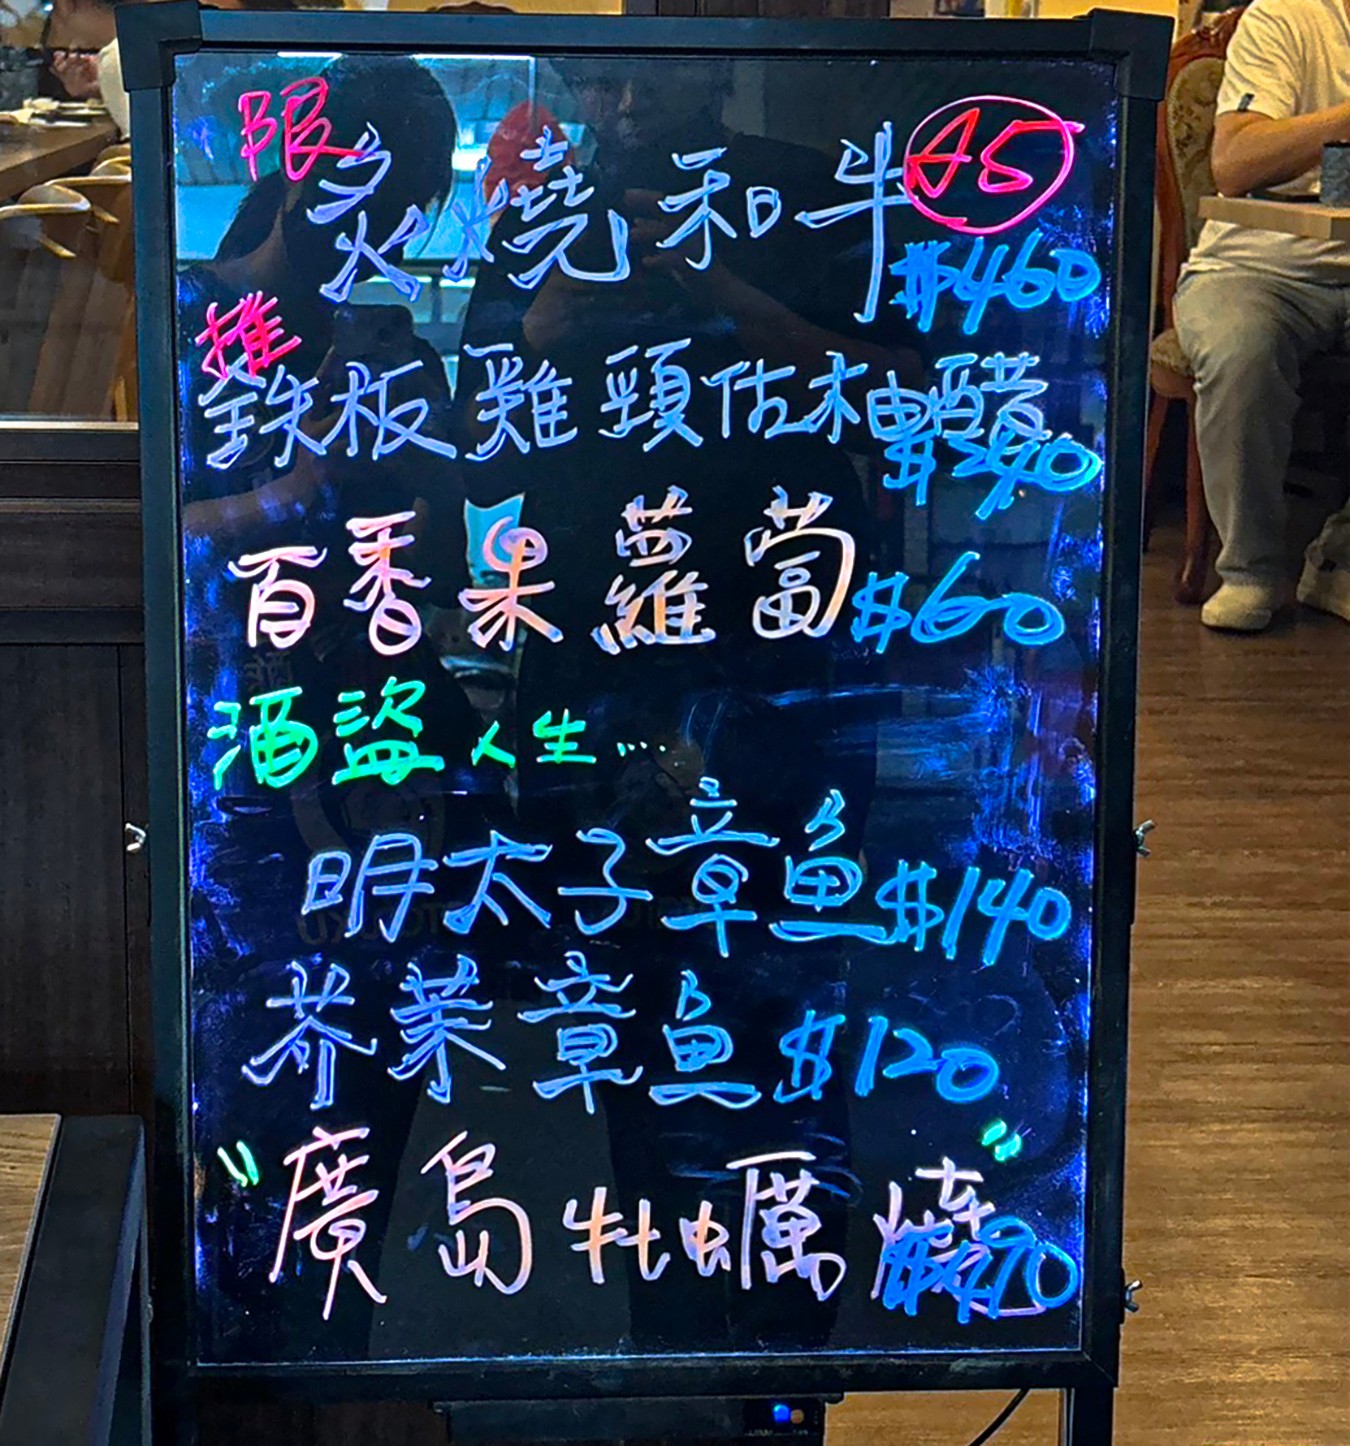 限 炙燒和牛 A5 $460
推
鉄板雞頸佐柚醋 $340
百香果蘿蔔 $60
酒盜人生...
明太子章魚 $140
芥茉章魚 $120
"廣島牡蠣燒" $470